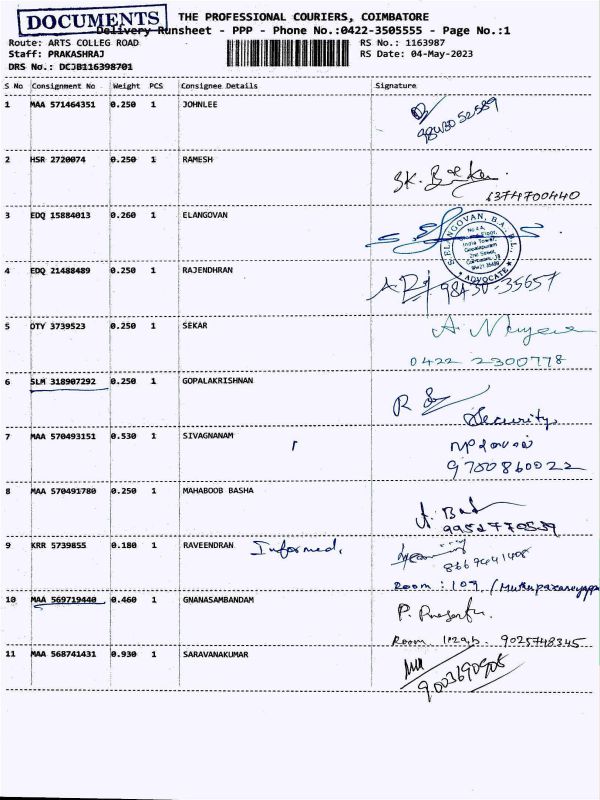 DOCUMENTS
THE PROFESSIONAL COURIERS, COIMBATORE
Delivery Runsheet - PPP - Phone No.:0422-3505555 - Page No.:1
Route: ARTS COLLEG ROAD RS No.: 1163987
Staff: PRAKASHRAJ RS Date: 04-May-2023
DRS No.: DCJB116398701
S No Consignment No Weight PCS Consignee Details Signature
1 MAA 571464351 0.250 1 JOHNLEE
9843052589
2 HSR 2720074 0.250 1 RAMESH
6374700440
3 EDQ 15884013 0.260 1 ELANGOVAN
ELANGOVAN, B.A. B.L.,
India Tower,
Gopalapuram
2nd Street,
ADVOCATE
4 EDQ 21488489 0.250 1 RAJENDHRAN
98430-35657
5 OTY 3739523 0.250 1 SEKAR
0422 2300778
6 SLM 318907292 0.250 1 GOPALAKRISHNAN
Security,
7 MAA 570493151 0.530 1 SIVAGNANAM
9700860022
8 MAA 570491780 0.250 1 MAHABOOB BASHA
9952770539
9 KRR 5739855 0.180 1 RAVEENDRAN Informed,
8667441408
Room : 109
10 MAA 569719440 0.460 1 GNANASAMBANDAM
Room 9025748345
11 MAA 568741431 0.930 1 SARAVANAKUMAR
9003690905